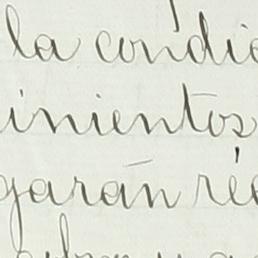 la condic
inientos
garán ré